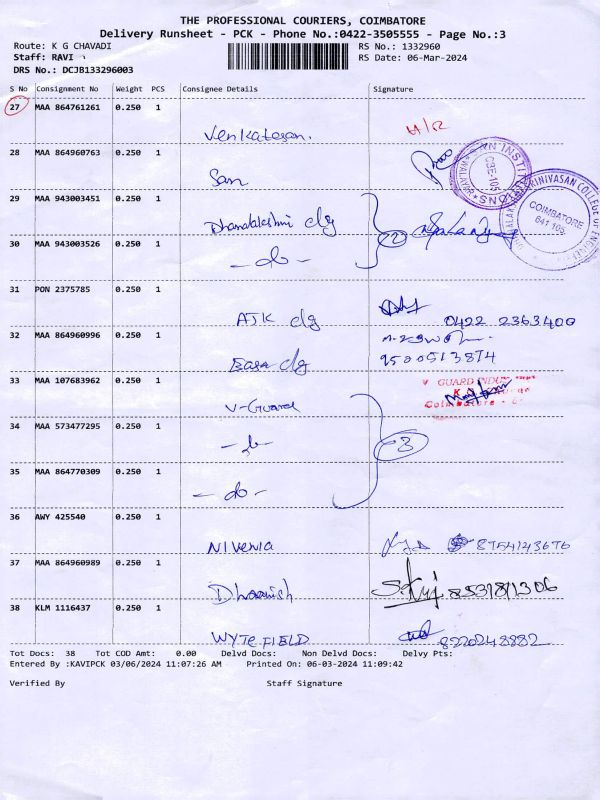 THE PROFESSIONAL COURIERS, COIMBATORE
Delivery Runsheet - PCK - Phone No.:0422-3505555 - Page No.:3
Route: K G CHAVADI RS No.: 1332960
Staff: RAVI RS Date: 06-Mar-2024
DRS No.: DCJB133296003
S No Consignment No Weight PCS Consignee Details Signature
27 MAA 864761261 0.250 1
Venkatesan. H/R
28 MAA 864960763 0.250 1
San
29 MAA 943003451 0.250 1
Dhanalakshmi clg
30 MAA 943003526 0.250 1 (2)
- do -
31 PON 2375785 0.250 1
AJK clg 0422 2363400
32 MAA 864960996 0.250 1
Easa clg 9500513874
33 MAA 107683962 0.250 1
V-Guard V GUARD
Coimbatore
34 MAA 573477295 0.250 1
- do - 3
35 MAA 864770309 0.250 1
- do -
36 AWY 425540 0.250 1
Nivenia
37 MAA 864960989 0.250 1
Dhaanish
38 KLM 1116437 0.250 1
WYTE FIELD 8220248882
COIMBATORE
641 105.
CBE-105
WALAYAR
Tot Docs: 38 Tot COD Amt: 0.00 Delvd Docs: Non Delvd Docs: Delvy Pts:
Entered By :KAVIPCK 03/06/2024 11:07:26 AM Printed On: 06-03-2024 11:09:42
Verified By Staff Signature